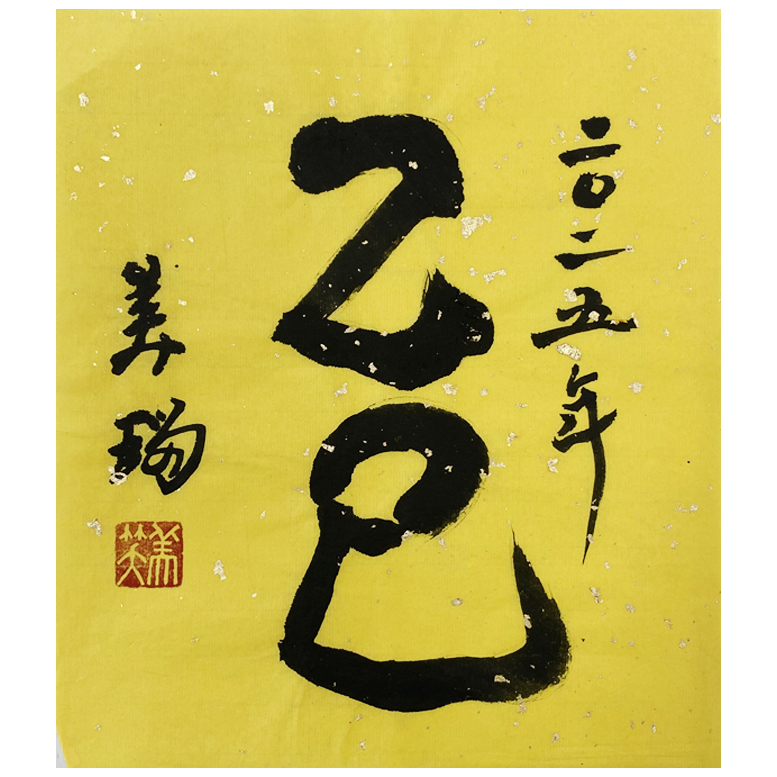 二〇二五年
乙巳
美瑞